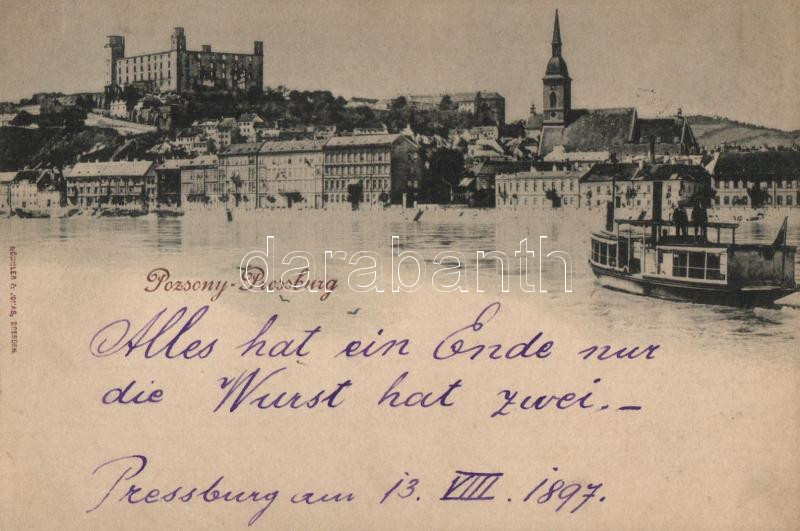 Pozsony-Pressburg
darabanth.com
RÖMMLER & JONAS, DRESDEN.
Alles hat ein Ende nur
die Wurst hat zwei.–
Pressburg am 13. VIII. 1897.